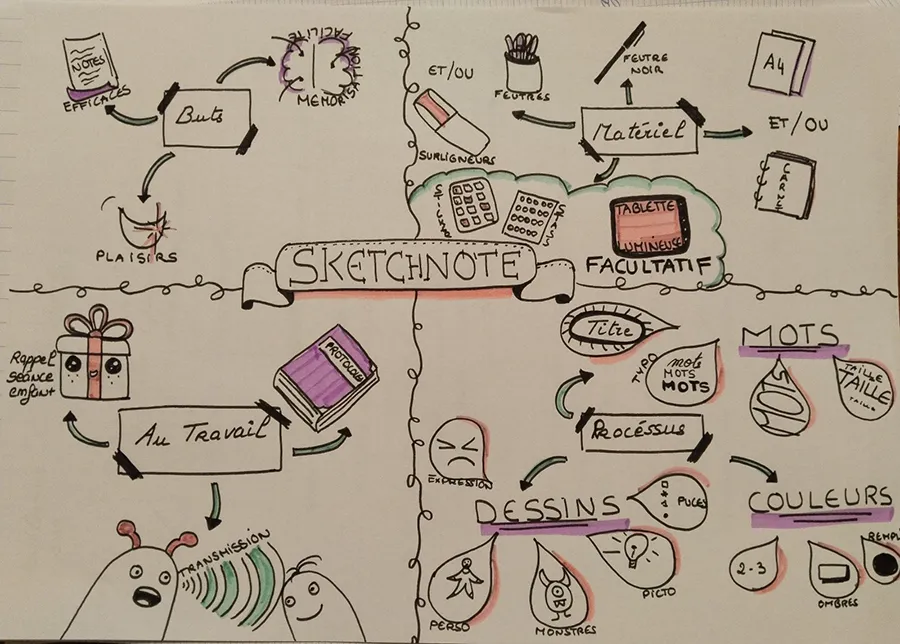 NOTES
EFFICACES
FACILITE
MEMORISATION
Buts
PLAISIRS
ET/OU
FEUTRES
FEUTRE
NOIR
A4
SURLIGNEURS
Matériel
ET/OU
CARNET
STICKER
STRASS
TABLETTE
LUMINEUSE
FACULTATIF
SKETCHNOTE
Rappel
séance
enfant
PROTOCOLE
Au Travail
TRANSMISSION
Titre
TYPO
mots
MOTS
MOTS
MOTS
TAILLE
TAILLE
TAILLE
Procéssus
EXPRESSION
DESSINS
PUCES
PERSO
MONSTRES
PICTO
COULEURS
2-3
OMBRES
REMPLI